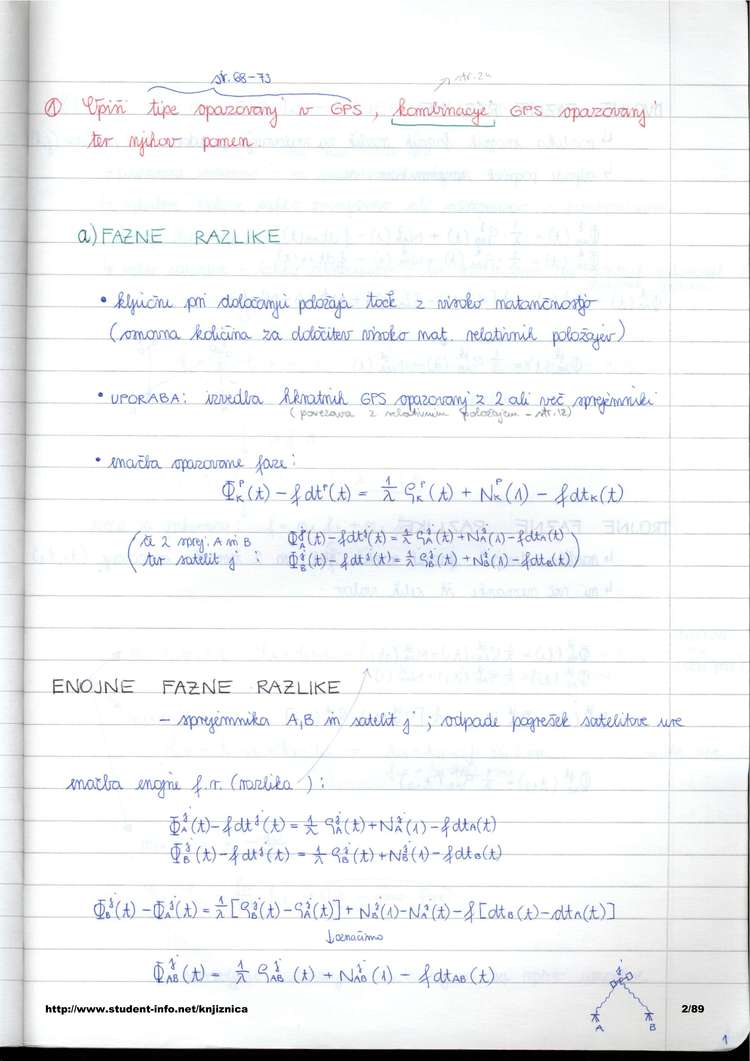 str. 68-73
str. 24
① Opiši tipe opazovanj v GPS, kombinacije GPS opazovanj
ter njihov pomen
a) FAZNE RAZLIKE
• ključne pri določanju položaja točk z visoko natančnostjo
(osnovna količina za določitev visoko nat. relativnih položajev)
• UPORABA: izvedba hkratnih GPS opazovanj z 2 ali več sprejemniki
(povezava z relativnim položajem - str. 12)
• enačba opazovane faze:
Φ_K^P(t) - f dt^P(t) = 1/λ ρ_K^P(t) + N_K^P(1) - f dt_K(t)
(če 2 sprej. A in B Φ_A^j(t) - f dt^j(t) = 1/λ ρ_A^j(t) + N_A^j(1) - f dt_A(t)
ter satelit j: Φ_B^j(t) - f dt^j(t) = 1/λ ρ_B^j(t) + N_B^j(1) - f dt_B(t))
ENOJNE FAZNE RAZLIKE
- sprejemnika A,B in satelit j; odpade pogrešek satelitove ure
enačba enojne f.r. (razlika):
Φ_A^j(t) - f dt^j(t) = 1/λ ρ_A^j(t) + N_A^j(1) - f dt_A(t)
Φ_B^j(t) - f dt^j(t) = 1/λ ρ_B^j(t) + N_B^j(1) - f dt_B(t)
Φ_B^j(t) - Φ_A^j(t) = 1/λ [ρ_B^j(t) - ρ_A^j(t)] + N_B^j(1) - N_A^j(1) - f [dt_B(t) - dt_A(t)]
↓ označimo
Φ_AB^j(t) = 1/λ ρ_AB^j(t) + N_AB^j(1) - f dt_AB(t)
j
A B
http://www.student-info.net/knjiznica 2/89
1